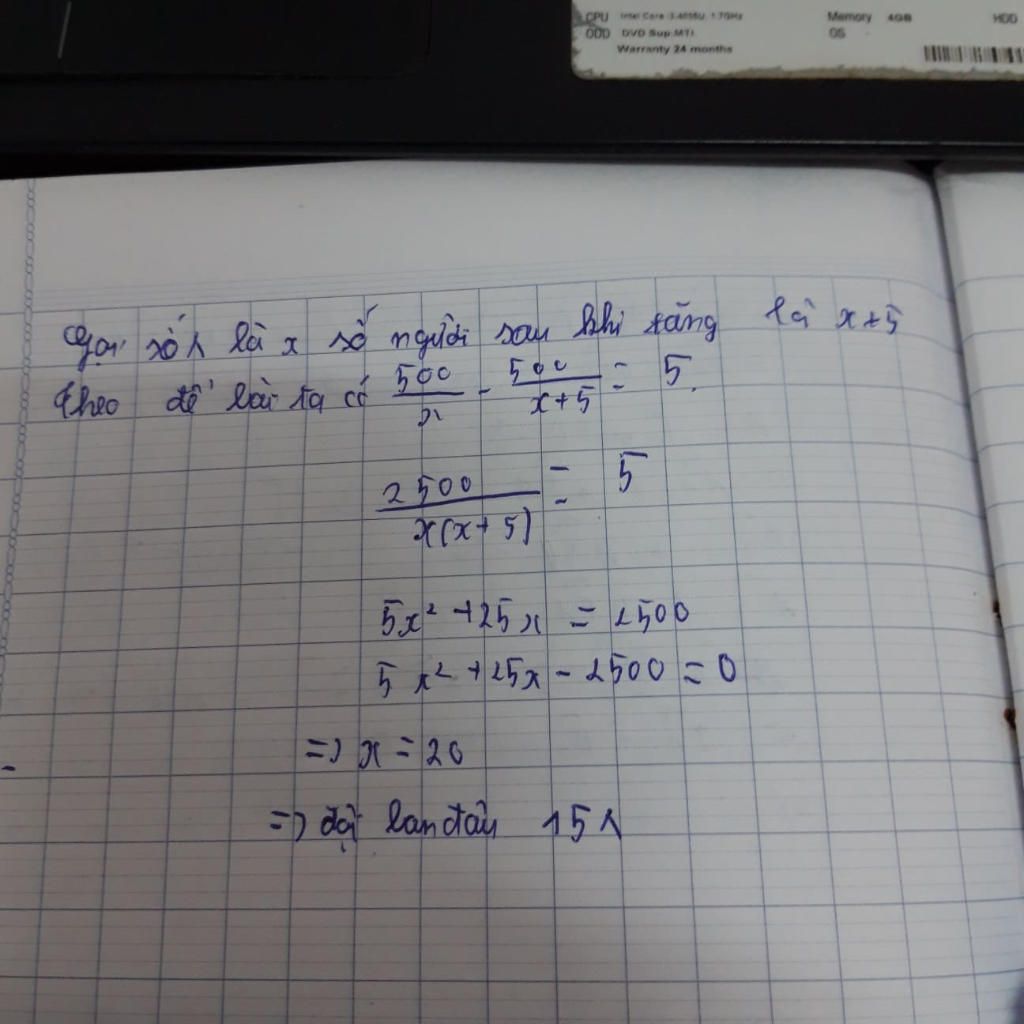 CPU Intel Core i3-4005U, 1.7GHz Memory 4GB HDD
ODD DVD Sup.MTI. OS
Warranty 24 months
Gọi số λ là x số người sau khi tăng là x+5
theo đề bài ta có 500/x - 500/x+5 = 5
2500/x(x+5) = 5
5x² +25x = 2500
5x² +25x - 2500 = 0
=> x = 20
=> đội ban đầu 15λ